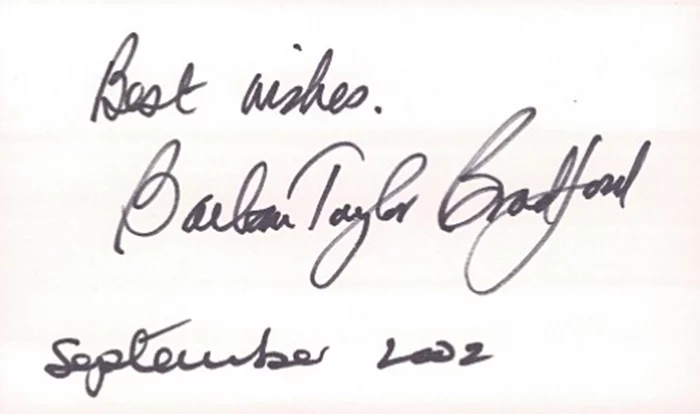 Best wishes.
Barbara Taylor Bradford
September 2002